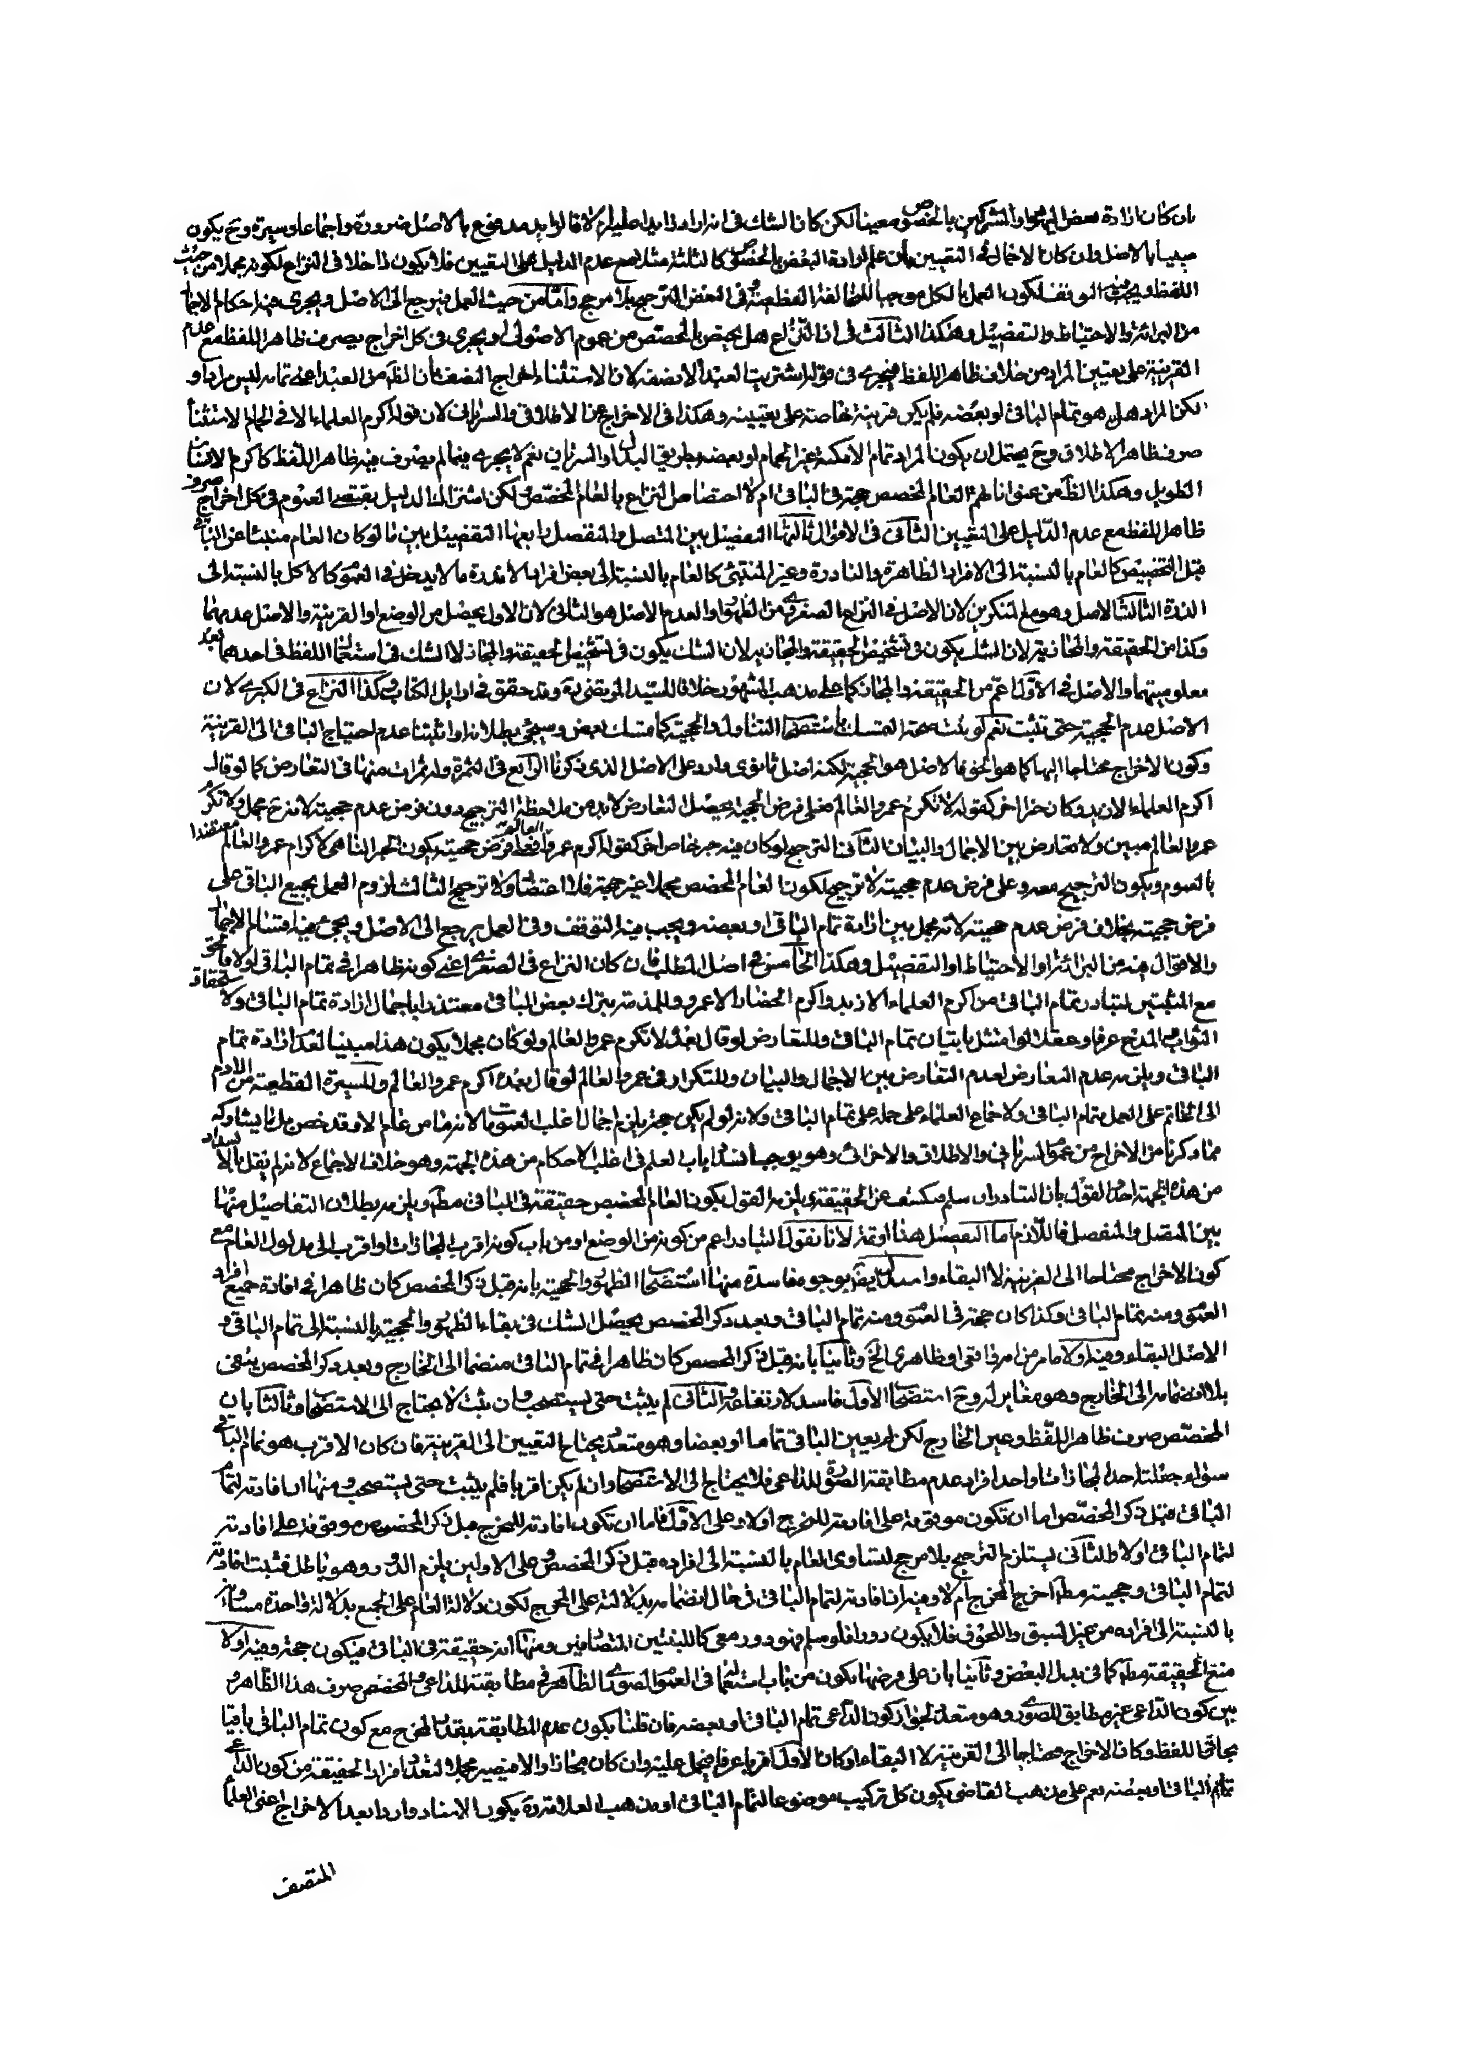 بان كان ارادة بعض اليهود والمشركين بالخصوص معينا لكن كان الشك فى انه اراد زايدا عليه ام لا فالزايد مدفوع بالاصل ضرورة واجماعا وسيرة وح يكون
مبينا بالاصل وان كان الاجمال فى التعيين بان علم ارادة البعض بالخصوص كالثلثة مثلا مع عدم الدليل على التعيين فلا يكون داخلا فى النزاع لكونه مجملا من حيث
اللفظ ويجب فيه التوقف لكون العمل بالكل موجبا للمخالفة القطعية وفى البعض الترجيح بلا مرجح واما من حيث العمل فيرجع الى الاصل ويجرى فيه احكام الاجمال
من البرائة والاحتياط والتفصيل وهكذا الثالث فى ان النزاع هل يختص بالمخصص من عموم الاصولى او يجرى فى كل اخراج يصرف ظاهر اللفظ مع عدم
القرينة على تعيين المراد من خلاف ظاهر اللفظ فيجرى فى قوله اشتريت العبد الا نصفه لان الاستثناء اخراج النصف بان الظ من العبد اعنى تمامه ليس مرادا و
لكن المراد هل هو تمام الباقى او بعضه فلم يكن قرينة خاصة على تعيينه وهكذا فى الاخراج عن الاطلاقى والسريانى لان قوله اكرم العلماء الا فى الحمام الاستثناء
صرف ظاهر الاطلاق وح يحتمل ان يكون المراد تمام الامكنة غير الحمام او بعضه بطريق البدل او السريان نعم لا يجرى فيما لم يصرف فيه ظاهر اللفظ كاكرم الانسان
الطويل وهكذا الظ من عنوانهم العام المخصص حجة فى الباقى ام لا اختصاص النزاع بالعام المخصص لكن اشتراك الدليل يقتضى العموم فى كل اخراج صرف
ظاهر اللفظ مع عدم الدليل على التعيين الثانى فى الاقوال ثالثها التفصيل بين المتصل والمنفصل رابعها التفصيل بين ما لو كان العام منبئا عن الباقى
قبل التخصيص كالعام بالنسبة الى الافراد الظاهرة والنادرة وغير المنبئى كالعام بالنسبة الى بعض افراد الاندرة ما لا يدخل فى العموم كالاكل بالنسبة الى
الندرة الثالث الاصل وهو مع المنكرين لان الاصل فى النزاع الصغرى من الظهور او العدم الاصل هو الثانى لان الاول يحصل من الوضع او القرينة والاصل عدمهما
وكذا من الحقيقة والمجازية لان الشك يكون فى تشخيص الحقيقة والمجازية لان الشك يكون فى تشخيص الحقيقة والمجاز لا الشك فى استعمال اللفظ فى احدهما بعد
معلوميتهما والاصل فى الاول اعم من الحقيقة والمجاز كما على مذهب المشهور خلافا للسيد المرتضى ره وقد حقق فى اوايل الكتاب وكذا النزاع فى الكبرى لان
الاصل عدم الحجية حتى تثبت نعم لو ثبت صحة التمسك باستصحاب التناول والحجية كما تمسك بعض وسيجئ بطلانه او اثبتنا عدم احتياج الباقى الى القرينة
وكون الاخراج محتاجا اليها كما هو الحق فالاصل هو الحجية لكنه اصل ثانوى وارد على الاصل الذى ذكرنا الرابع فى الثمرة وله ثمرات منها فى التعارض كما لو قال
اكرم العلماء الا زيد وكان خبر اخر كقوله لا تكرم عمرو العالم فعلى فرض الحجية يحصل التعارض لا بد من ملاحظة الترجيح دون فرض عدم حجيته لانه ح مجمل ولا تكرم
عمرو العالم مبين ولا تعارض بين الاجمال والبيان الثانى الترجيح لو كان فيه خبر خاص اخر كقوله اكرم عمرو العالم فعلى فرض حجيته يكون الخبر النافى لاكرام عمرو العالم معتضدا
بالعموم ويكون الترجيح معه وعلى فرض عدم حجيته لا ترجيح لكون العام المخصص مجملا غير حجة فلا اعتضاد ولا ترجيح الثالث لزوم العمل بجميع الباقى على
فرض حجيته بخلاف فرض عدم حجيته لانه مجمل بين ارادة تمام الباقى او بعضه ويجب فيه التوقف وفى العمل يرجع الى الاصل ويجئ فيه اقسام الاجمال
والاقوال فيه من البرائة او الاحتياط او التفصيل وهكذا الخامس فى اصل المطلب فان كان النزاع فى الصغرى اعنى كونه ظاهرا فى تمام الباقى او لا فالحق
مع المثبتين لتبادر تمام الباقى من اكرم العلماء الا زيد واكرم الحضار الا عمرو وللمذمة بترك بعض الباقى معتذرا باجمال ارادة تمام الباقى ولاستحقاق
الثواب والمدح عرفا وعقلا لو امتثل باتيان تمام الباقى وللتعارض لو قال بعد لا تكرم عمرو العالم ولو كان مجملا يكون هذا مبينا لعدم ارادة تمام
الباقى ويلزمه عدم التعارض لعدم التعارض بين الاجمال والبيان وللتكرار فى عمرو العالم لو قال بعده اكرم عمرو العالم وللسيرة القطعية من الادم
الى الخاتم على العمل بتمام الباقى ولاجماع العلماء على حمله على تمام الباقى ولانه لو لم يكن حجة يلزم اجمال اغلب العمومات لانه ما من عام الا وقد خص بل ما يشاركه
مما ذكرنا من الاخراج من عموم السريانى والاطلاقى والاجزائى وهو يوجب انسداد باب العلم فى اغلب الاحكام من هذه الجهة وهو خلاف الاجماع لانه لم يقل بالانسداد
من هذه الجهة احد القول بان التبادر ان سلم يكشف عن الحقيقة يلزمه القول بكون العام المخصص حقيقة فى الباقى مطلقا ويلزمه بطلان التفاصيل منها
بين المتصل والمنفصل فاللازم اما التفصيل هنا او ثمة لانا نقول التبادر اعم من كونه من الوضع او من باب كونه اقرب المجازات او اقرب الى مدلول العام مع
كون الاخراج محتاجا الى القرينة لا البقاء واستدل ايضا بوجوه فاسدة منها استصحاب الظهور والحجية بانه قبل ذكر المخصص كان ظاهرا فى افادة جميع افراد
العموم ومنه تمام الباقى وكذا كان حجة فى العموم ومنه تمام الباقى وبعد ذكر المخصص يحصل الشك فى بقاء الظهور والحجية بالنسبة الى تمام الباقى و
الاصل البقاء وفيه اولا ما مر من امر فى افتى او ظاهرى الخ وثانيا بانه قبل ذكر المخصص كان ظاهرا فى تمام الباقى منضما الى الخارج وبعد ذكر المخصص ينفى
بلا انضمامه الى الخارج وهو مغاير له وح استصحاب الاول فاسد لارتفاعه والثانى لم يثبت حتى يستصحب وان ثبت لا يحتاج الى الاستصحاب وثالثا بان
المخصص صرف ظاهر اللفظ وعين الخارج لكن لم يعين الباقى تماما او بعضا وهو متعدد يحتاج التعيين الى القرينة فان كان الاقرب هو تمام الباقى
سواء جعلته احد المجازات او احد افراد عدم مطابقة الصورة للداعى فلا يحتاج الى الاستصحاب وان لم يكن اقربا فلم يثبت حتى يستصحب ومنها ان افادته لتمام
الباقى قبل ذكر المخصص اما ان تكون موقوفة على افادته للمخرج او لا وعلى الاول فاما ان تكون افادته للمخرج قبل ذكر المخصص موقوفة على افادته
لتمام الباقى او لا والثانى يستلزم الترجيح بلا مرجح لتساوى العام بالنسبة الى افراده قبل ذكر المخصص وعلى الاولين يلزم الدور وهو باطل فثبت افادته
لتمام الباقى وحجيته مطلقا اخرج المخرج ام لا وفيه ان افادته لتمام الباقى فى حال انضمامه بدلالته على المخرج لكون دلالة العام على الجميع بدلالة واحدة مساويه
بالنسبة الى افراده من غير السبق واللحوق فلا يكون دورا فلو سلم فهو دور معى كاللبنتين المتضامين ومنها انه حقيقة فى الباقى فيكون حجة وفيه اولا
منع الحقيقة مطلقا كما فى بدل البعض وثانيا بان على فرضها يكون من باب استعمالها فى العموم الصورى الظاهر فى مطابقته للداعى والمخصص صرف هذا الظاهر و
بين كون الداعى غير مطابق للصورة وهو متعدد لجواز كون الداعى تمام الباقى او بعضه فان قلنا بكون عدم المطابقة بقدر المخرج مع كون تمام الباقى باقيا
بحاله فى اللفظ وكان الاخراج محتاجا الى القرينة لا البقاء او كان الاول اقربا عرفا فيحمل عليه وان كان مجازا والا فيصير مجملا لتعدد افراد الحقيقة من كون الداعى
تمام الباقى او بعضه نعم على مذهب القاضى بكون كل تركيب موضوعا لتمام الباقى او مذهب العلامة ره بكون الاسناد واردا بعد الاخراج اعنى العلماء
المتصف